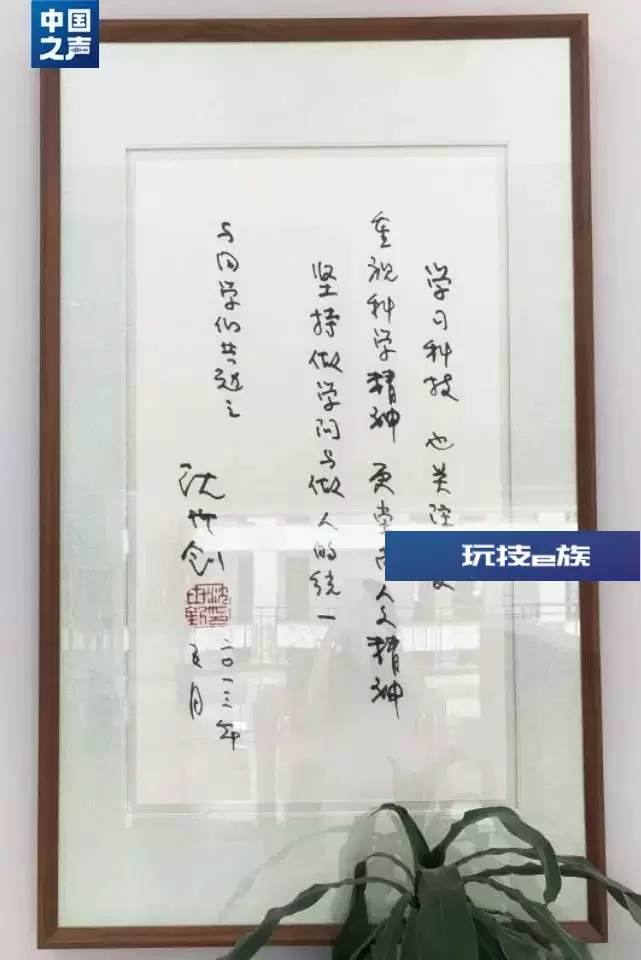 中国
之声
学习科技 也关
重视科学精神 更崇尚人文精神
坚持做学问与做人的统一
与同学们共勉之
沈世钊
二〇一三年
五月
玩技e族